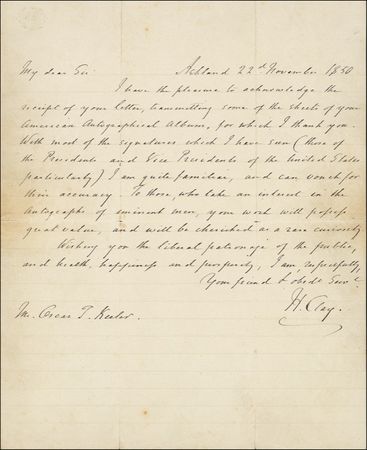 My dear Sir: Ashland 22d November 1850
I have the pleasure to acknowledge the
receipt of your letter, transmitting some of the sheets of your
American Autographical Album, for which I thank you.
With most of the signatures which I have seen (those of
the Presidents and Vice Presidents of the United States
particularly) I am quite familiar, and can vouch for
their accuracy. To those, who take an interest in the
Autographs of eminent men, your work will possess
great value, and will be cherished as a rare curiosity
Wishing you the liberal patronage of the public,
and health, happiness and prosperity, I am, respectfully,
Your friend & obedt Servt.
H. Clay.
Mr. Oscar T. Keeler.